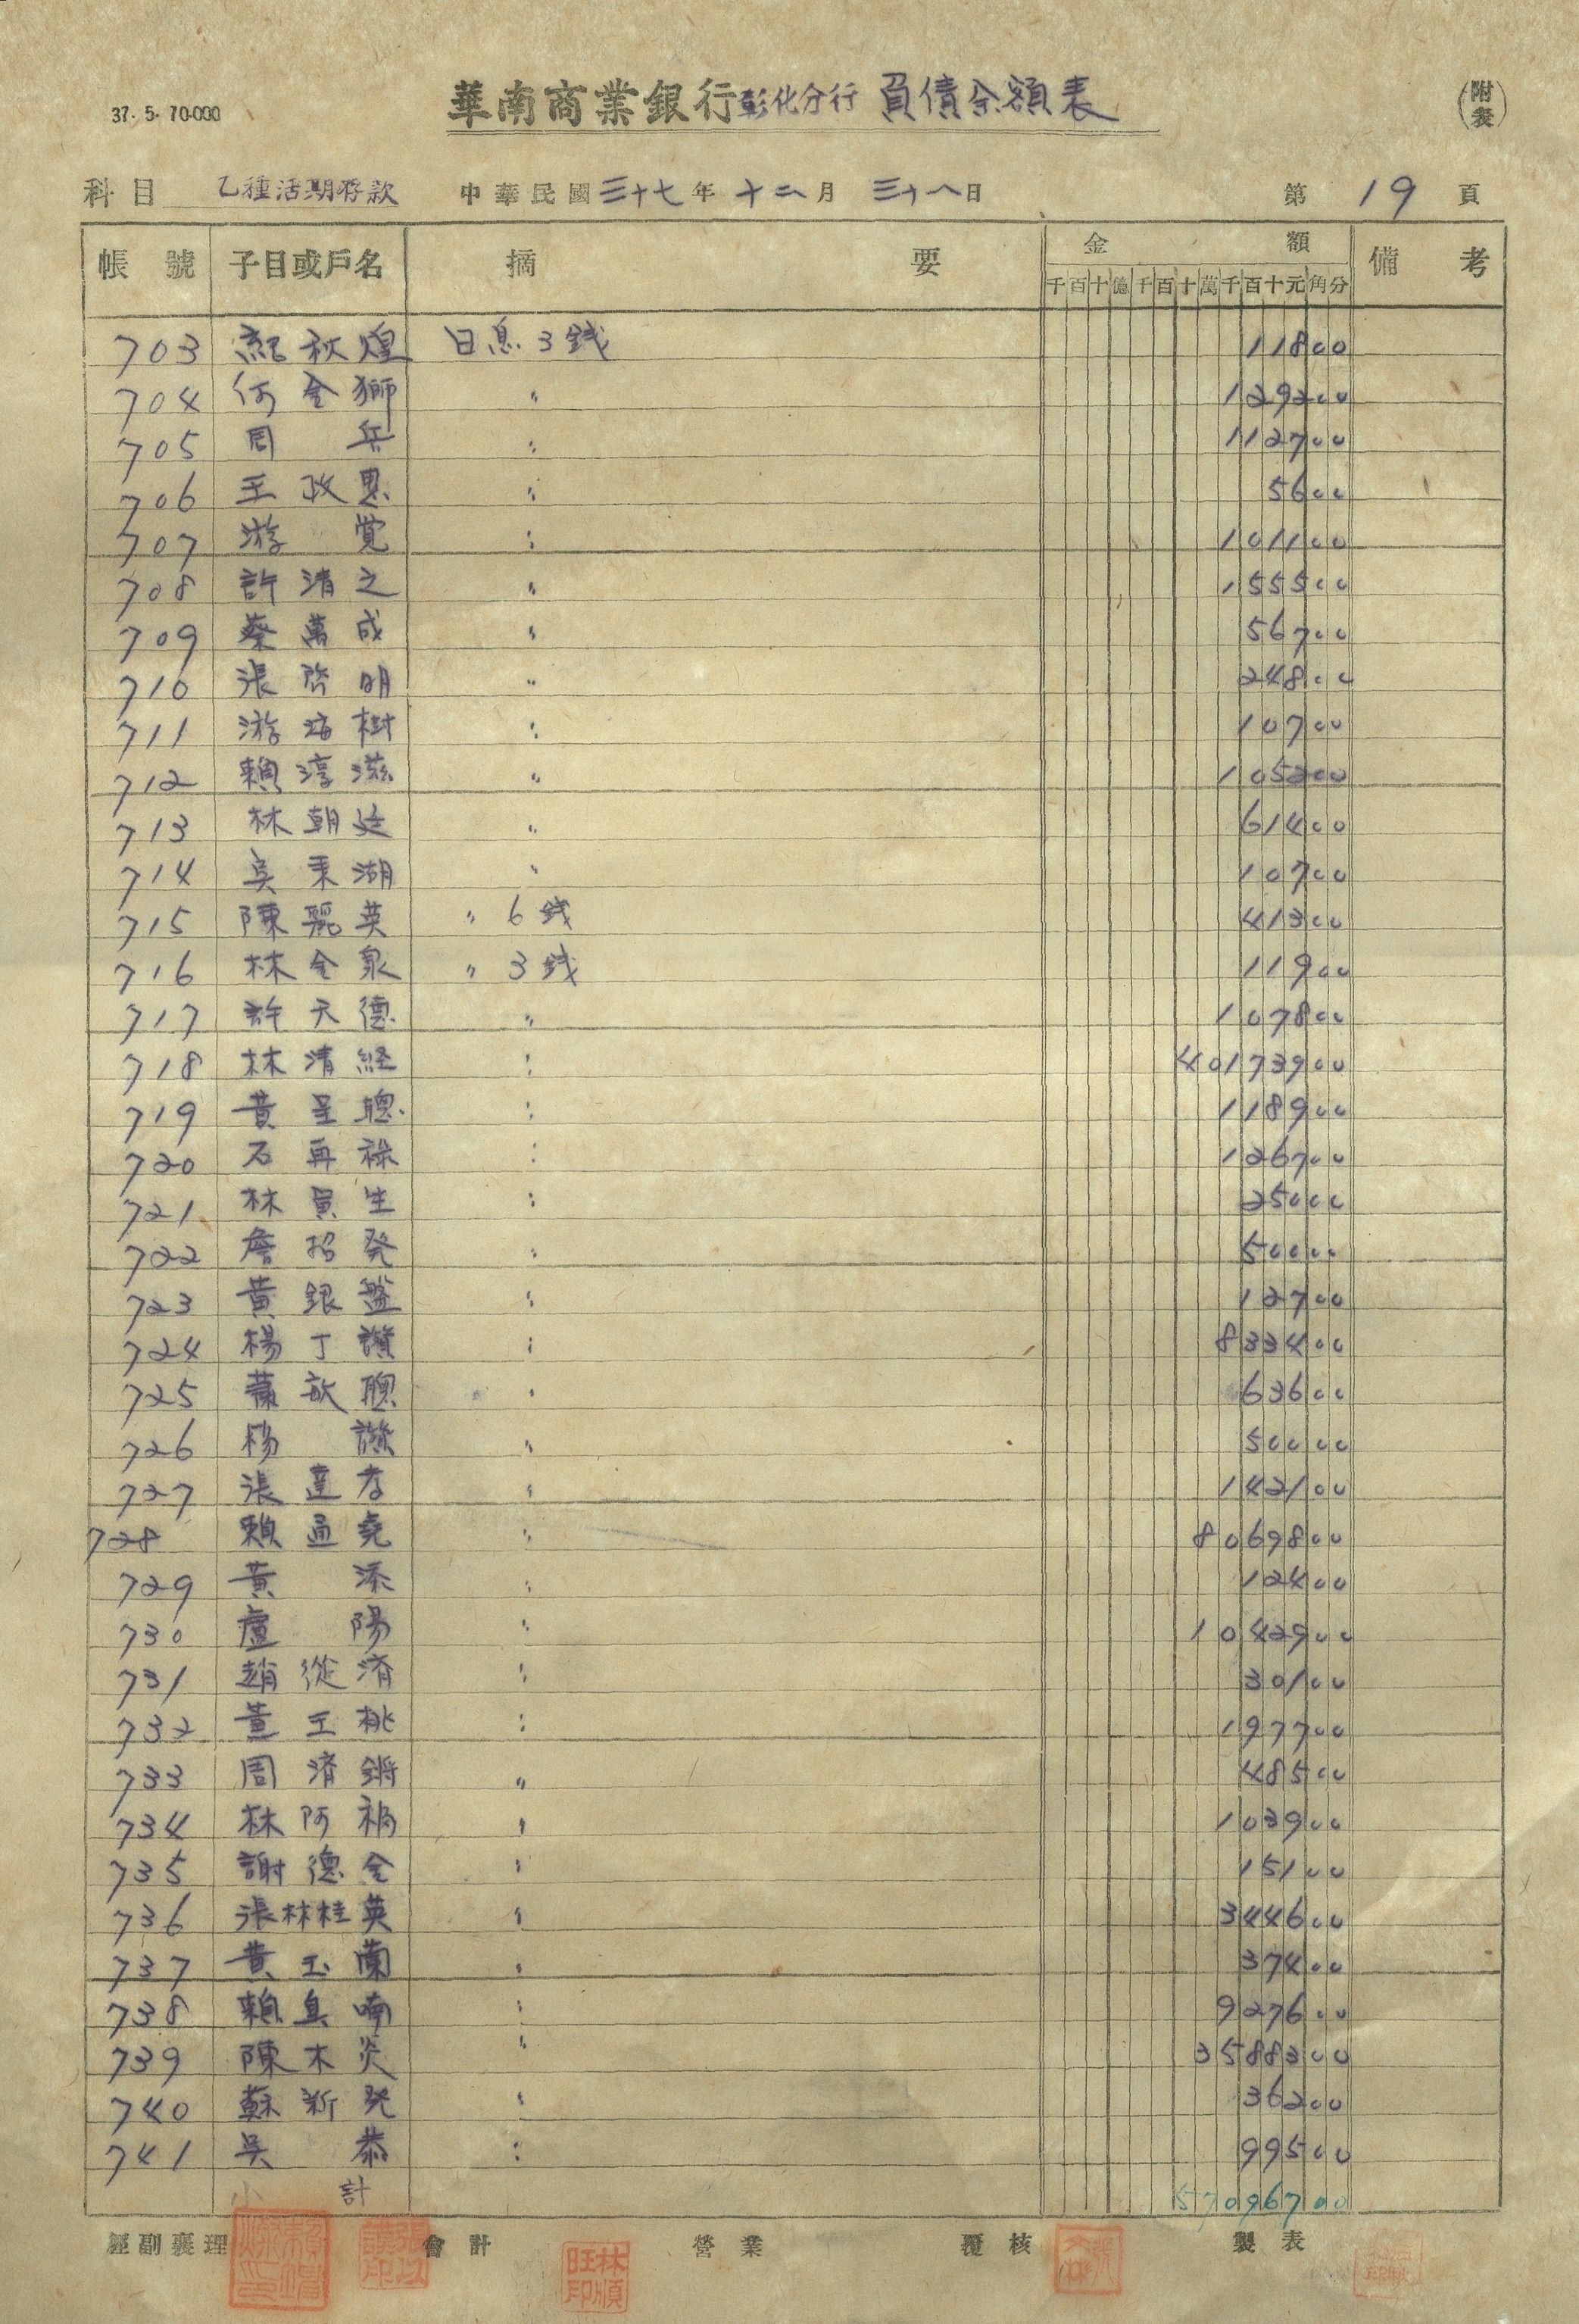 37.5.70.000
華南商業銀行彰化分行 負債余額表
(附表)
科目 乙種活期存款 中華民國三十七年十二月三十一日 第19頁
帳號 子目或戶名 摘要 金額 備考
千百十億千百十萬千百十元角分
703 紀秋煌 日息3錢 11800
704 何金獅 〃 129200
705 周兵 〃 112700
706 王政恩 〃 5600
707 游覚 〃 101100
708 許清之 〃 155500
709 蔡萬成 〃 56700
710 張啓明 〃 24800
711 游海樹 〃 10700
712 賴淳滋 〃 105200
713 林朝廷 〃 61400
714 吳秉湖 〃 10700
715 陳麗英 〃 6錢 41300
716 林金泉 〃 3錢 11900
717 許天德 〃 107800
718 林清経 〃 40173900
719 黃呈聰 〃 118900
720 石再祿 〃 126700
721 林員生 〃 25000
722 詹招発 〃 50000
723 黃銀盤 〃 12700
724 楊丁讚 〃 833400
725 蕭啟聰 〃 63600
726 楊讚 〃 50000
727 張達孝 〃 142100
728 賴通堯 〃 8069800
729 黃添 〃 12400
730 盧陽 〃 1042900
731 趙從濟 〃 30100
732 董王桃 〃 197700
733 周濟鏘 〃 48500
734 林阿禍 〃 103900
735 謝德全 〃 15100
736 張林桂英 〃 344600
737 黃玉蘭 〃 37400
738 賴臭喃 〃 927600
739 陳木炎 〃 3588300
740 蘇新発 〃 36200
741 吳恭 〃 99500
小計 57096700
經副襄理 會計 營業 覆核 製表
林順旺印